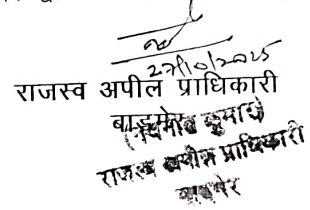 27/10/2025
राजस्व अपील प्राधिकारी
बाड़मेर
कुमार)
राजस्व अपील प्राधिकारी
बाड़मेर